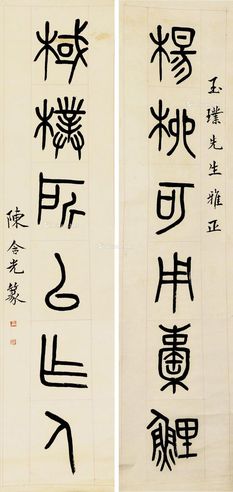 玉璞先生雅正
楊柳可用橐鯉
棫樸所㠯作人
陳含光篆